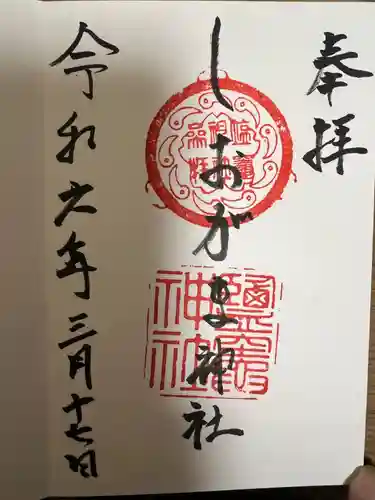 奉拝
しおがま神社
令和六年三月十七日
鹽竈神社